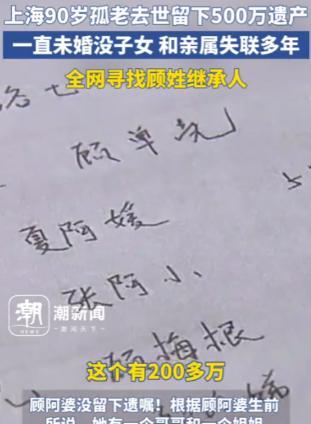 上海90岁孤老去世留下500万遗产
一直未婚没子女 和亲属失联多年
全网寻找顾姓继承人
顾单说
夏阿媛
张阿小
潮 潮新闻
顾梅根
这个有200多万
顾阿婆没留下遗嘱！根据顾阿婆生前
所说，她有一个哥哥和一个姐姐